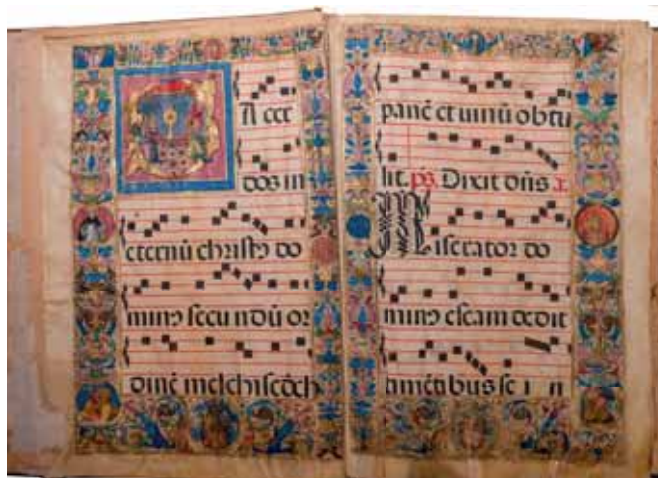 A cer
dos in
eternū christꝰ do
minꝰ secundū or
dinē melchisedech
panē et uinū obtu
lit. ps. Dixit dn̄s
Miserator do
minꝰ escam dedit
timētibus se i n